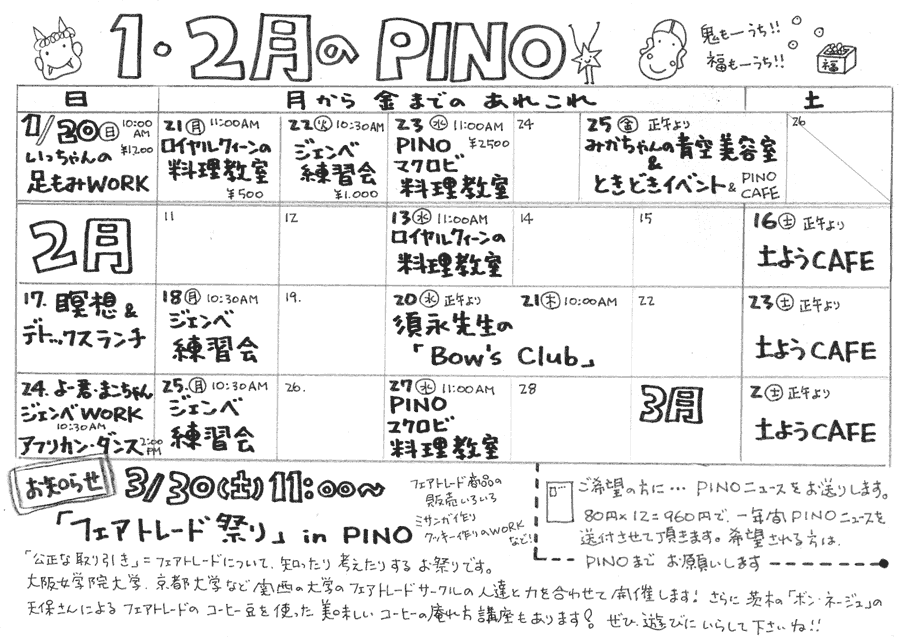 1・2月の PINO
鬼もーうち!!
福もーうち!!
福
日 月から金までのあれこれ 土
1/20(日) 10:00AM
¥1200
いっちゃんの
足もみWORK
21(月) 11:00AM
ロイヤルクィーンの
料理教室
¥500
22(火) 10:30AM
ジェンベ
練習会
¥1.000
23(水) 11:00AM
PINO ¥2500
マクロビ
料理教室
24
25(金) 正午より
みかちゃんの青空美容室
&
ときどきイベント& PINO CAFE
26
2月
11
12
13(水) 11:00AM
ロイヤルクィーンの
料理教室
14
15
16(土) 正午より
土ようCAFE
17. 瞑想&
デトックスランチ
18(月) 10:30AM
ジェンベ
練習会
19.
20(水) 正午より 21(木) 10:00AM
須永先生の
「Bow's Club」
22
23(土) 正午より
土ようCAFE
24. よー君・まこちゃん
ジェンベWORK
10:30AM
アフリカン・ダンス 2:00PM
25.(月) 10:30AM
ジェンベ
練習会
26.
27(水) 11:00AM
PINO
マクロビ
料理教室
28
3月
2(土) 正午より
土ようCAFE
お知らせ
3/30(土) 11:00〜
「フェアトレード祭り」in PINO
フェアトレード商品の
販売いろいろ
ミサンガ作り
クッキー作りのWORK
など!!
ご希望の方に… PINOニュースをお送りします。
80円×12=960円で、一年間PINOニュースを
送付させて頂きます。希望される方は、
PINOまで お願いします
「公正な取り引き」=フェアトレードについて、知ったり考えたりするお祭りです。
大阪女学院大学、京都大学など関西の大学のフェアトレードサークルの人達と力を合わせて開催します! さらに茨木の「ボン・ネージュ」の
天保さんによる フェアトレードのコーヒー豆を使った美味しいコーヒーの庵れ方講座もあります! ぜひ、遊びにいらして下さいね!!